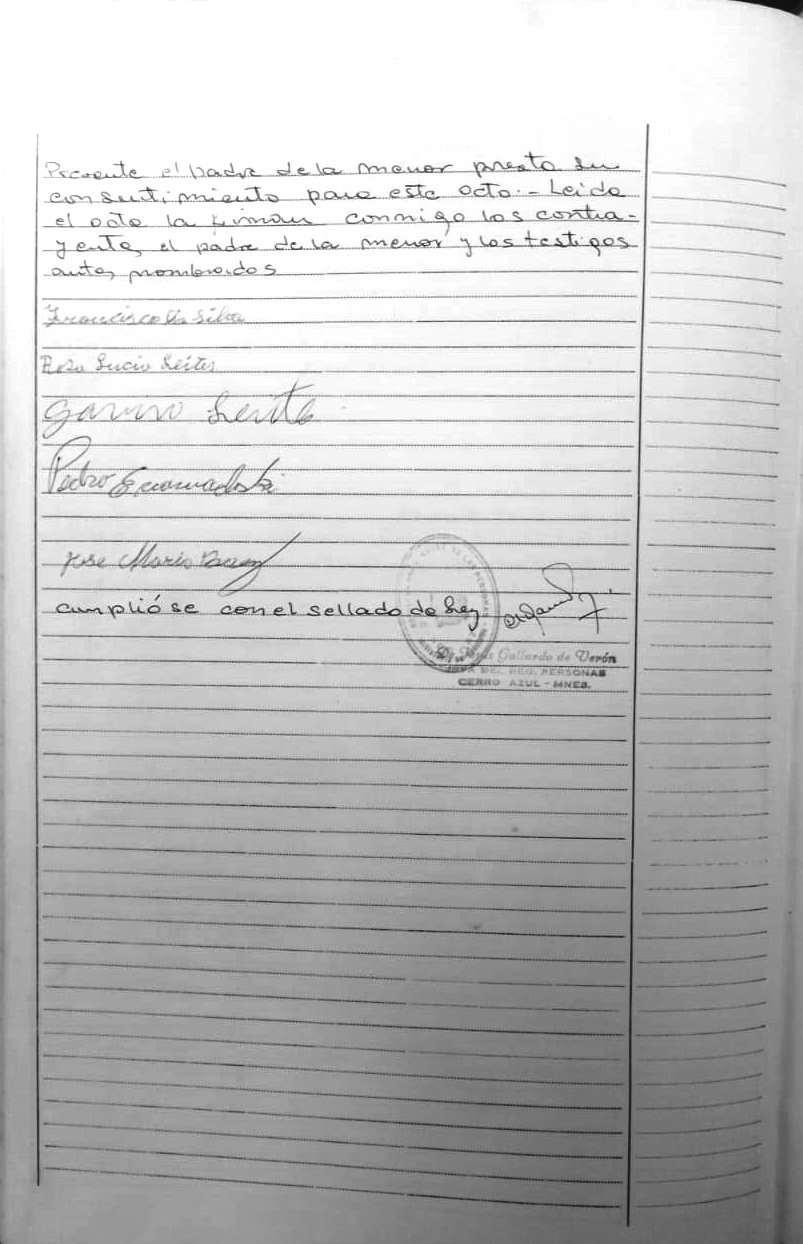 Presente el padre de la menor presta su
consentimiento para este acto.- Leida
el acto la firman conmigo los contra-
yentes, el padre de la menor y los testigos
antes nombrados
Francisco Da Silva
Rosa Lucia Leites
Pedro
Jose Maria
cumplióse con el sellado de Ley
Gallardo de Verón
JEFA DEL REG. PERSONAS
CERRO AZUL - MNES.